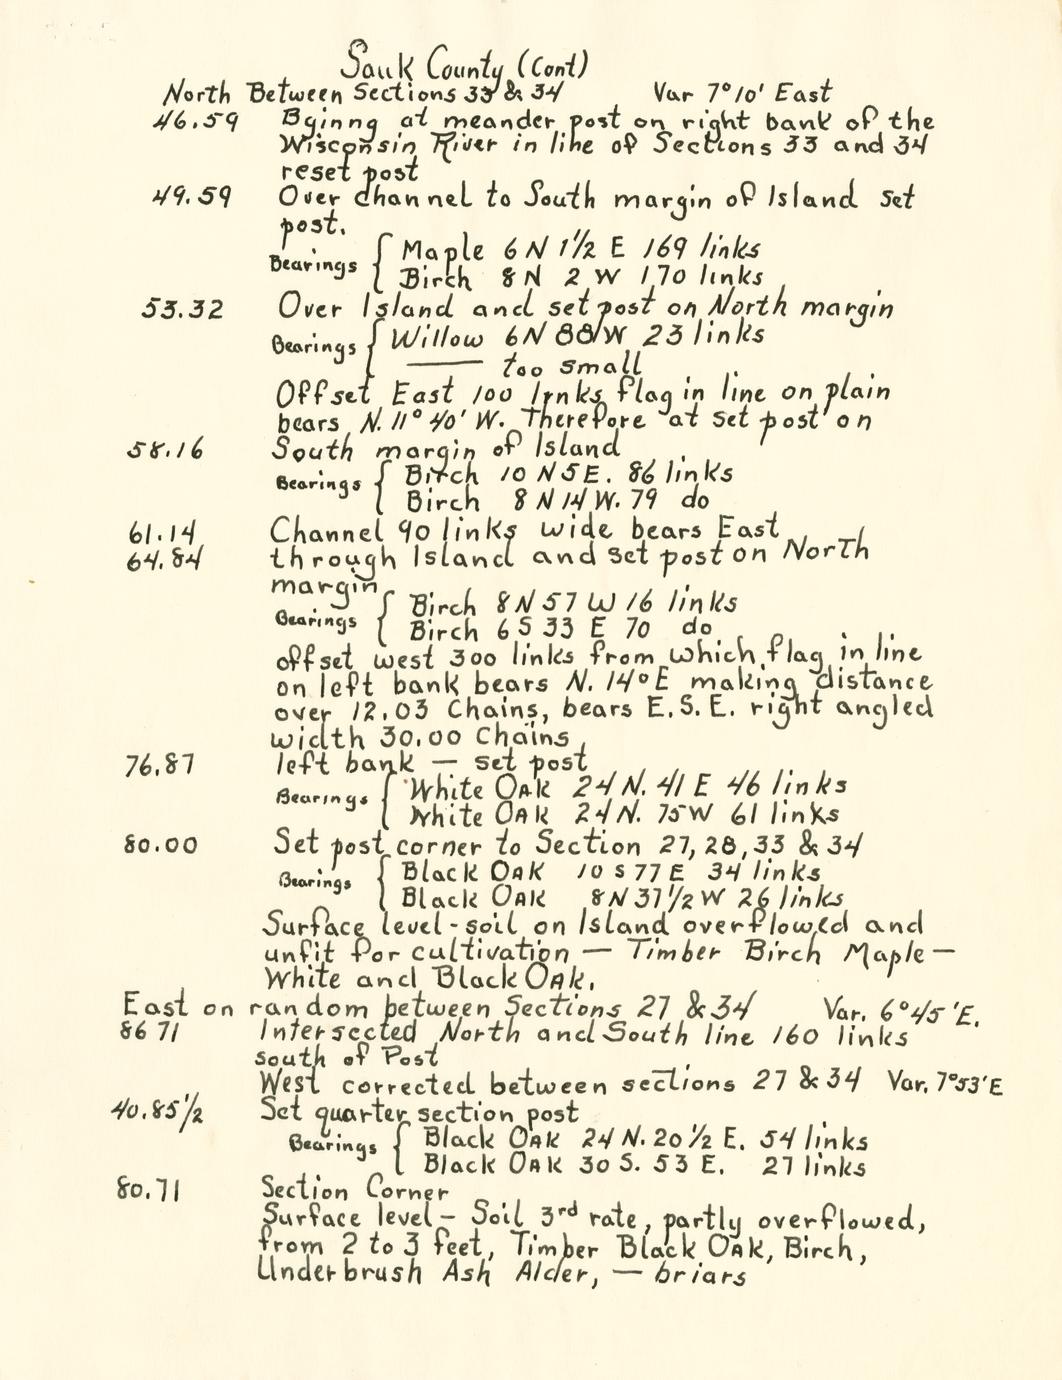 Sauk County (Cont)
North Between Sections 33 & 34 Var 7°10' East
46.59 Bginng at meander post on right bank of the
Wisconsin River in line of Sections 33 and 34
reset post
49.59 Over channel to South margin of Island set
post.
Bearings { Maple 6 N 1½ E 169 links
Birch 8 N 2 W 170 links
53.32 Over Island and set post on North margin
Bearings { Willow 6 N 88 W 23 links
—— too small
Offset East 100 links flag in line on plain
bears N. 11° 40' W. Therefore at set post on
58.16 South margin of Island
Bearings { Birch 10 N 5 E. 86 links
Birch 8 N 14 W. 79 do
61.14 Channel 90 links wide bears East
64.84 through Island and set post on North
margin
Bearings { Birch 8 N 57 W 16 links
Birch 6 S 33 E 70 do
offset west 300 links from which flag in line
on left bank bears N. 14° E making distance
over 12.03 Chains, bears E.S.E. right angled
width 30.00 Chains
76.87 left bank — set post
Bearings { White Oak 24 N. 41 E 46 links
White Oak 24 N. 75 W 61 links
80.00 Set post corner to Section 27, 28, 33 & 34
Bearings { Black Oak 10 S 77 E 34 links
Black Oak 8 N 37½ W 26 links
Surface level - soil on Island overflowed and
unfit for cultivation — Timber Birch Maple —
White and Black Oak.
East on random between Sections 27 & 34 Var. 6°45' E.
86 71 Intersected North and South line 160 links
south of Post
West corrected between sections 27 & 34 Var. 7°53' E
40.85½ Set quarter section post
Bearings { Black Oak 24 N. 20½ E. 54 links
Black Oak 30 S. 53 E. 27 links
80.71 Section Corner
Surface level – Soil 3rd rate, partly overflowed,
from 2 to 3 feet, Timber Black Oak, Birch,
Underbrush Ash Alder, — briars